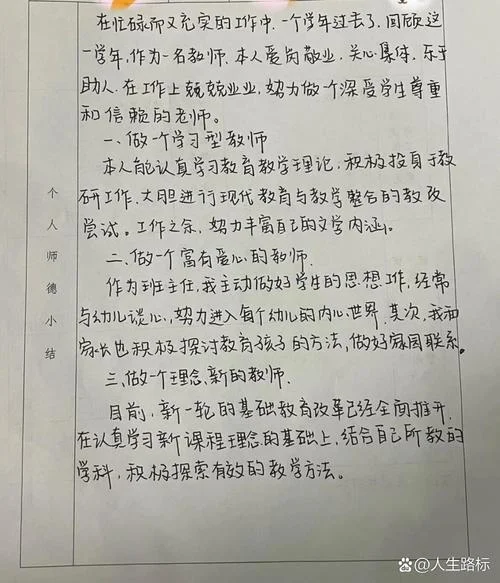 在忙碌而又充实的工作中，一个学年过去了，回顾这
一学年，作为一名教师，本人爱岗敬业，关心集体，乐于
助人，在工作上兢兢业业，努力做个深受学生尊重
和信赖的老师。
一、做一个学习型教师
本人能认真学习教育教学理论，积极投身于教
研工作，大胆进行现代教育与教学整合的教改
尝试。工作之余，努力丰富自己的文学内涵。
二、做一个富有爱心的教师.
作为班主任，我主动做好学生的思想工作，经常
与幼儿谈心，努力进入每个幼儿的内心世界，其次，我和
家长也积极探讨教育孩子的方法，做好家园联系。
三、做一个理念新的教师.
目前，新一轮的基础教育改革已经全面推开，
在认真学习新课程理念的基础上，结合自己所教的
学科，积极探索有效的教学方法。
个人师德小结
@人生路标